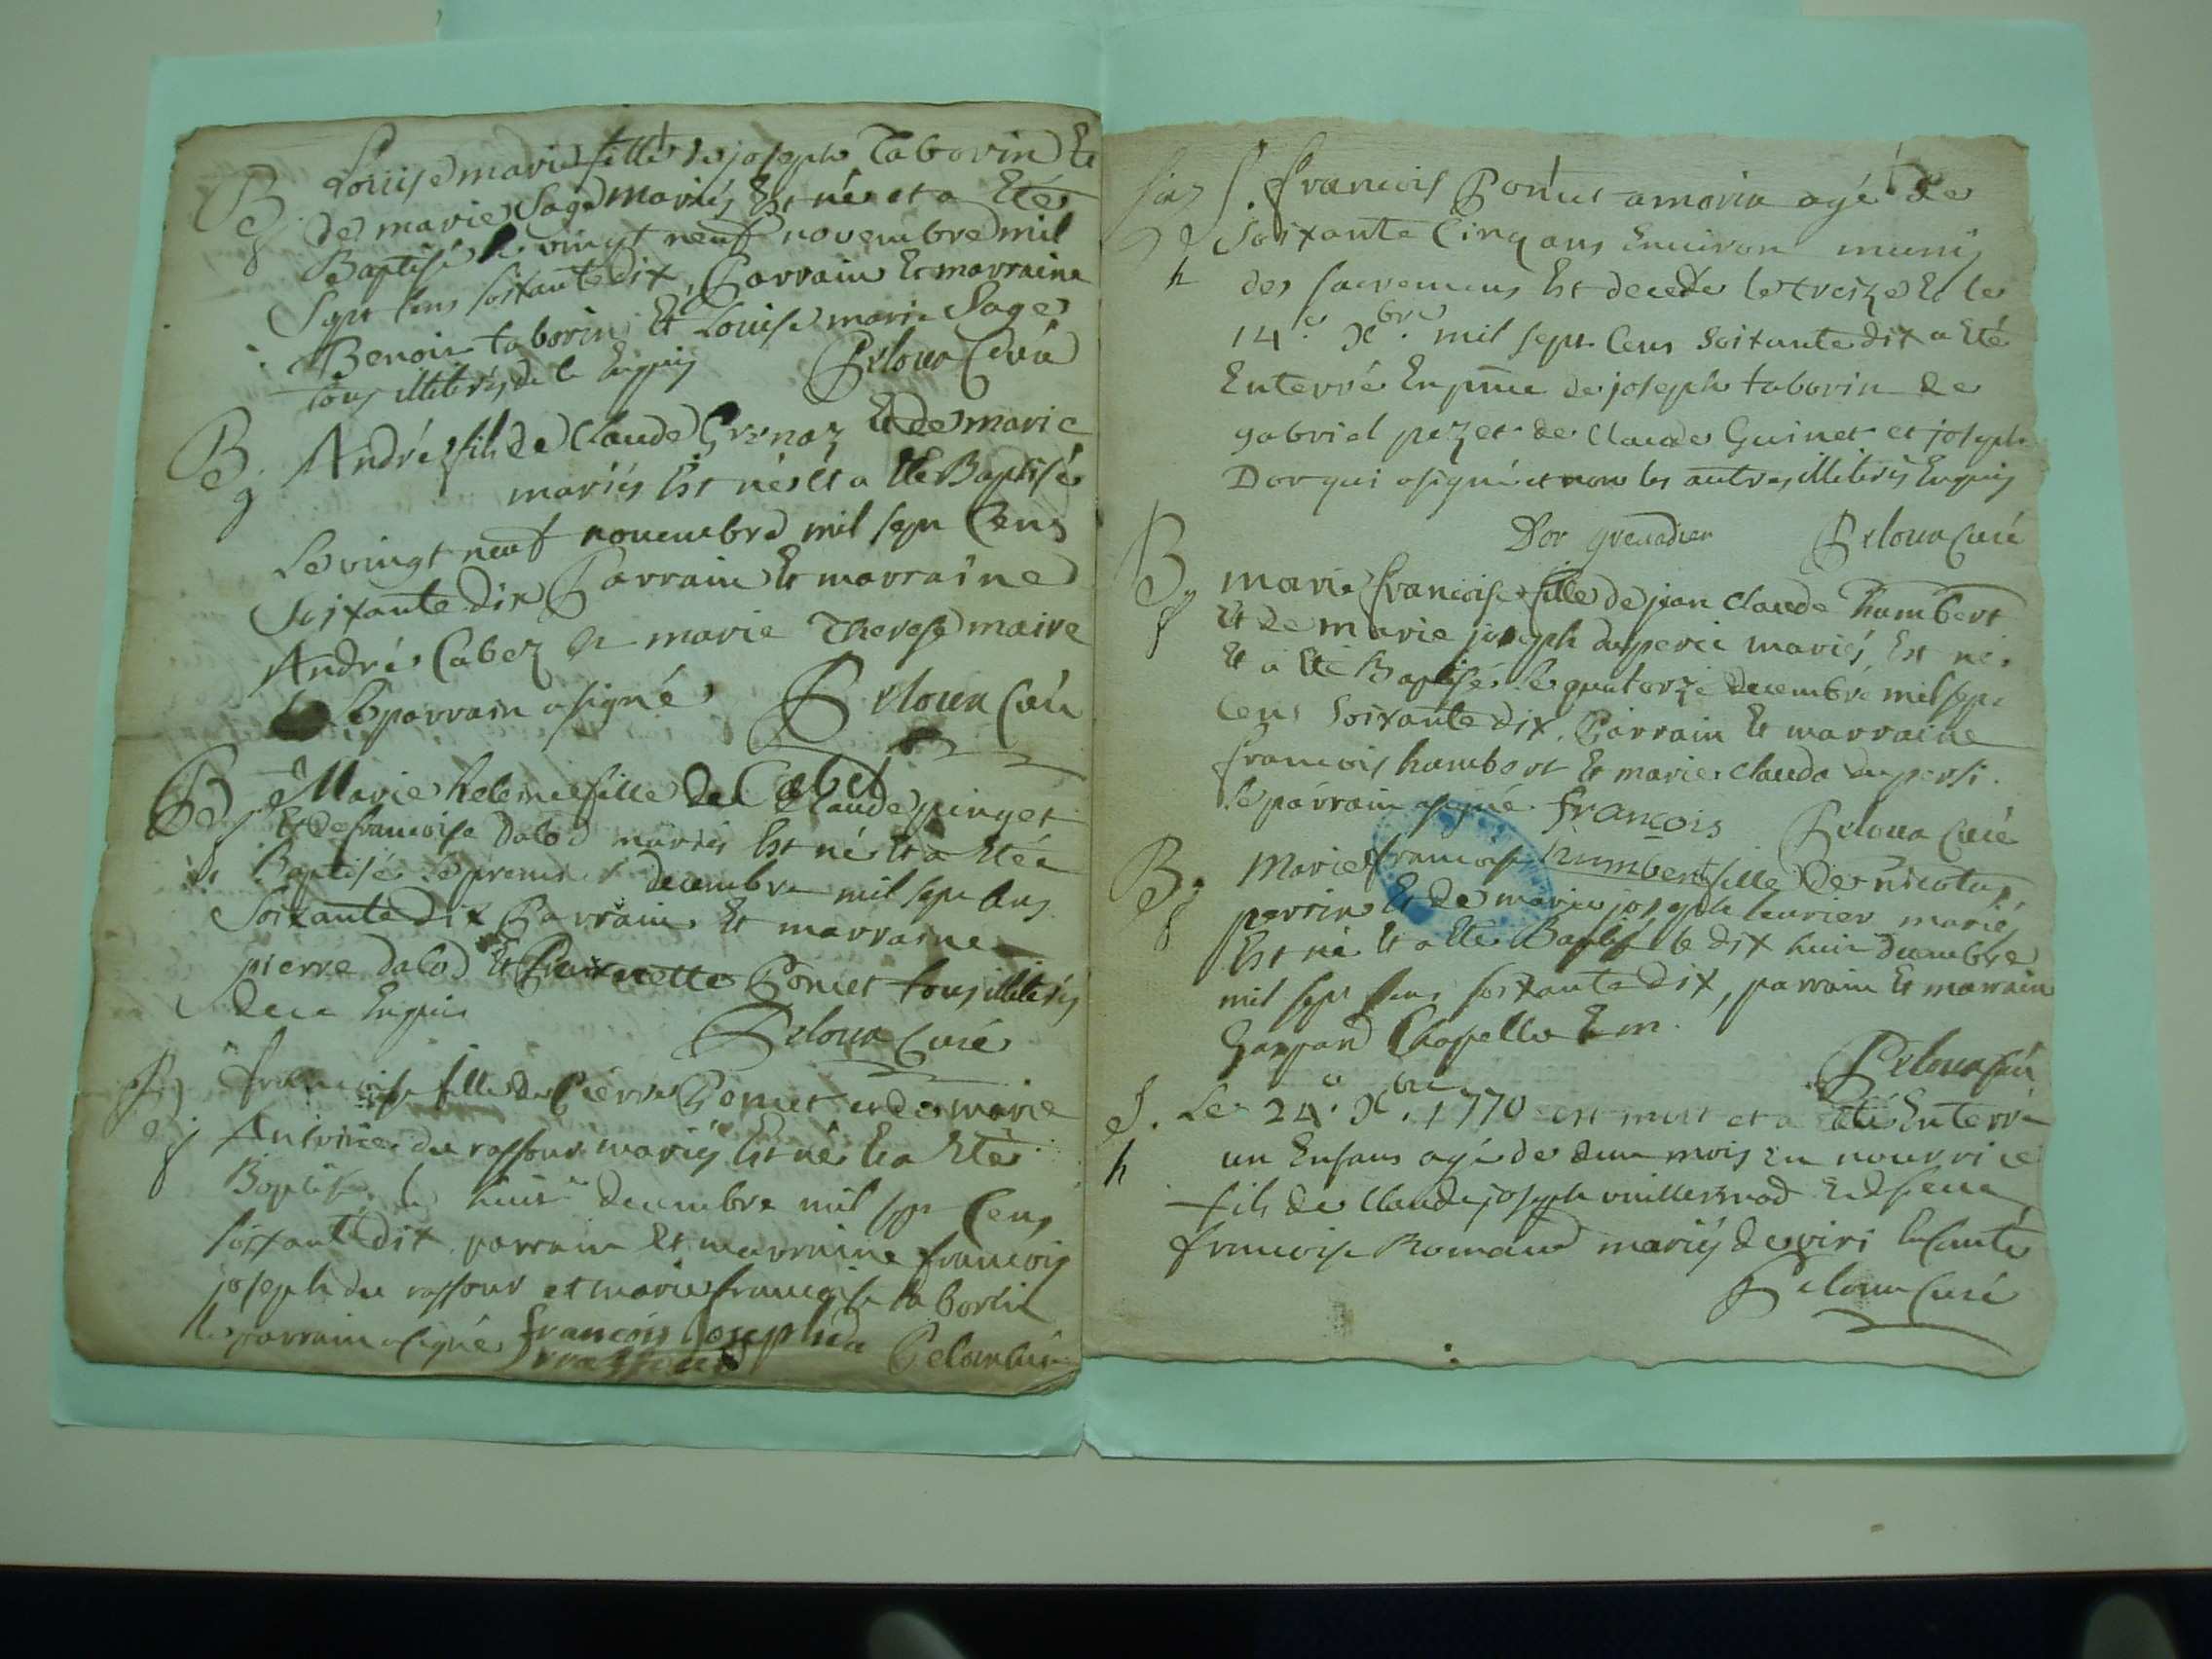 Louise marie fille de joseph Taborin Et
B de marie Sage mariés Est née et a Eté
Baptisé le vingt neuf novembre mil
Sept Cens soixante dix, Parrain Et marraine
Benoit taborin Et Louise marie Sage
tous illiterés de ce Enquis Peloux Curé
B. André fils de Claude Grenaz Et de marie
mariés Est né Et a Eté Baptisé
Le vingt neuf novembre mil sept Cens
Soixante dix Parrain Et marraine
André Cabez Et marie Therese maire
Le parrain a signé Peloux Curé
Cabet
B Marie helene fille de Claude pinget
Et de francoise dalod mariés Est né Et a Eté
Baptisé Le premier decembre mil sept Cens
Soixante dix Parrain Et marraine
pierre dalod Et Pierrette Poncet tous illiterés
de ce Enquis Peloux Curé
B francoise fille de Pierre Poncet et de marie
Antoine du raffour mariés Est né Et a Eté
Baptisé le huit decembre mil sept Cens
soixante dix, parrain Et marraine francois
joseph du raffour et marie francoise taborin
le parrain a signé francois Joseph du
raffour Peloux Curé
S. francois Poncet amorin agé de
Soixante Cinq ans Environ munis
h des sacremens Est decedé le treize Et le
14e Xbre mil sept Cens Soixante dix a Eté
Enterré En pnce de joseph taborin de
gabriel pezet de Claude Guinet et joseph
Dor qui a signé et non les autres illiterés Enquis
Dor grenadier Peloux Curé
B marie francoise fille de jean Claude humbert
Et de marie joseph duperci mariés, Est né
Et a Eté Baptisé Le quatorze decembre mil sept
Cens Soixante dix, Parrain Et marraine
francois humbert Et marie Claude duperci.
Le parrain a signé. françois Peloux Curé
humbert
B. Marie francoise fille de nicolas
perrin Et de marie joseph levrier mariés
Est né Et a Eté Baptisé le dix huit decembre
mil sept Cens soixante dix, parrain Et marraine
Gaspard Chapelle Et m.
Peloux Curé
S. Le 24e Xbre 1770 est mort et a Eté Enterré
h un Enfans agé de d'un mois En nourrice
fils de Claude joseph vuillermod Et de
francoise Romand mariés de viri
Peloux Curé